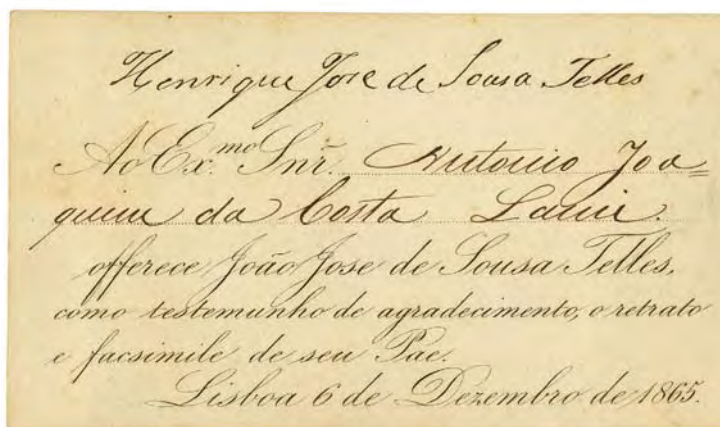 Henrique Jose de Sousa Telles
Ao Ex.mo Snr. Antonio Joa=
quim da Costa
offerece João Jose de Sousa Telles,
como testemunho de agradecimento, o retrato
e facsimile de seu Pae.
Lisboa 6 de Dezembro de 1865.